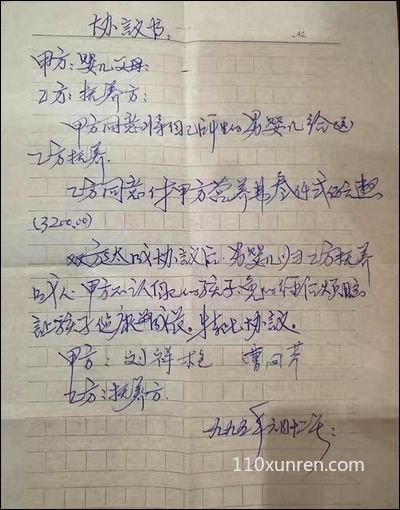 协议书:
No
甲方:婴儿父母:
乙方:抚养方:
甲方同意将自己所生的男婴儿给送
乙方抚养.
乙方同意付甲方营养费叁仟贰佰元整
(3200.00)
双方达成协议后.男婴儿归乙方抚养
成人.甲方不认
让孩子健康成长.特此协议。
甲方:刘祥 曹
乙方:抚养方.
一九九五年六月十二号:
110xunren.com